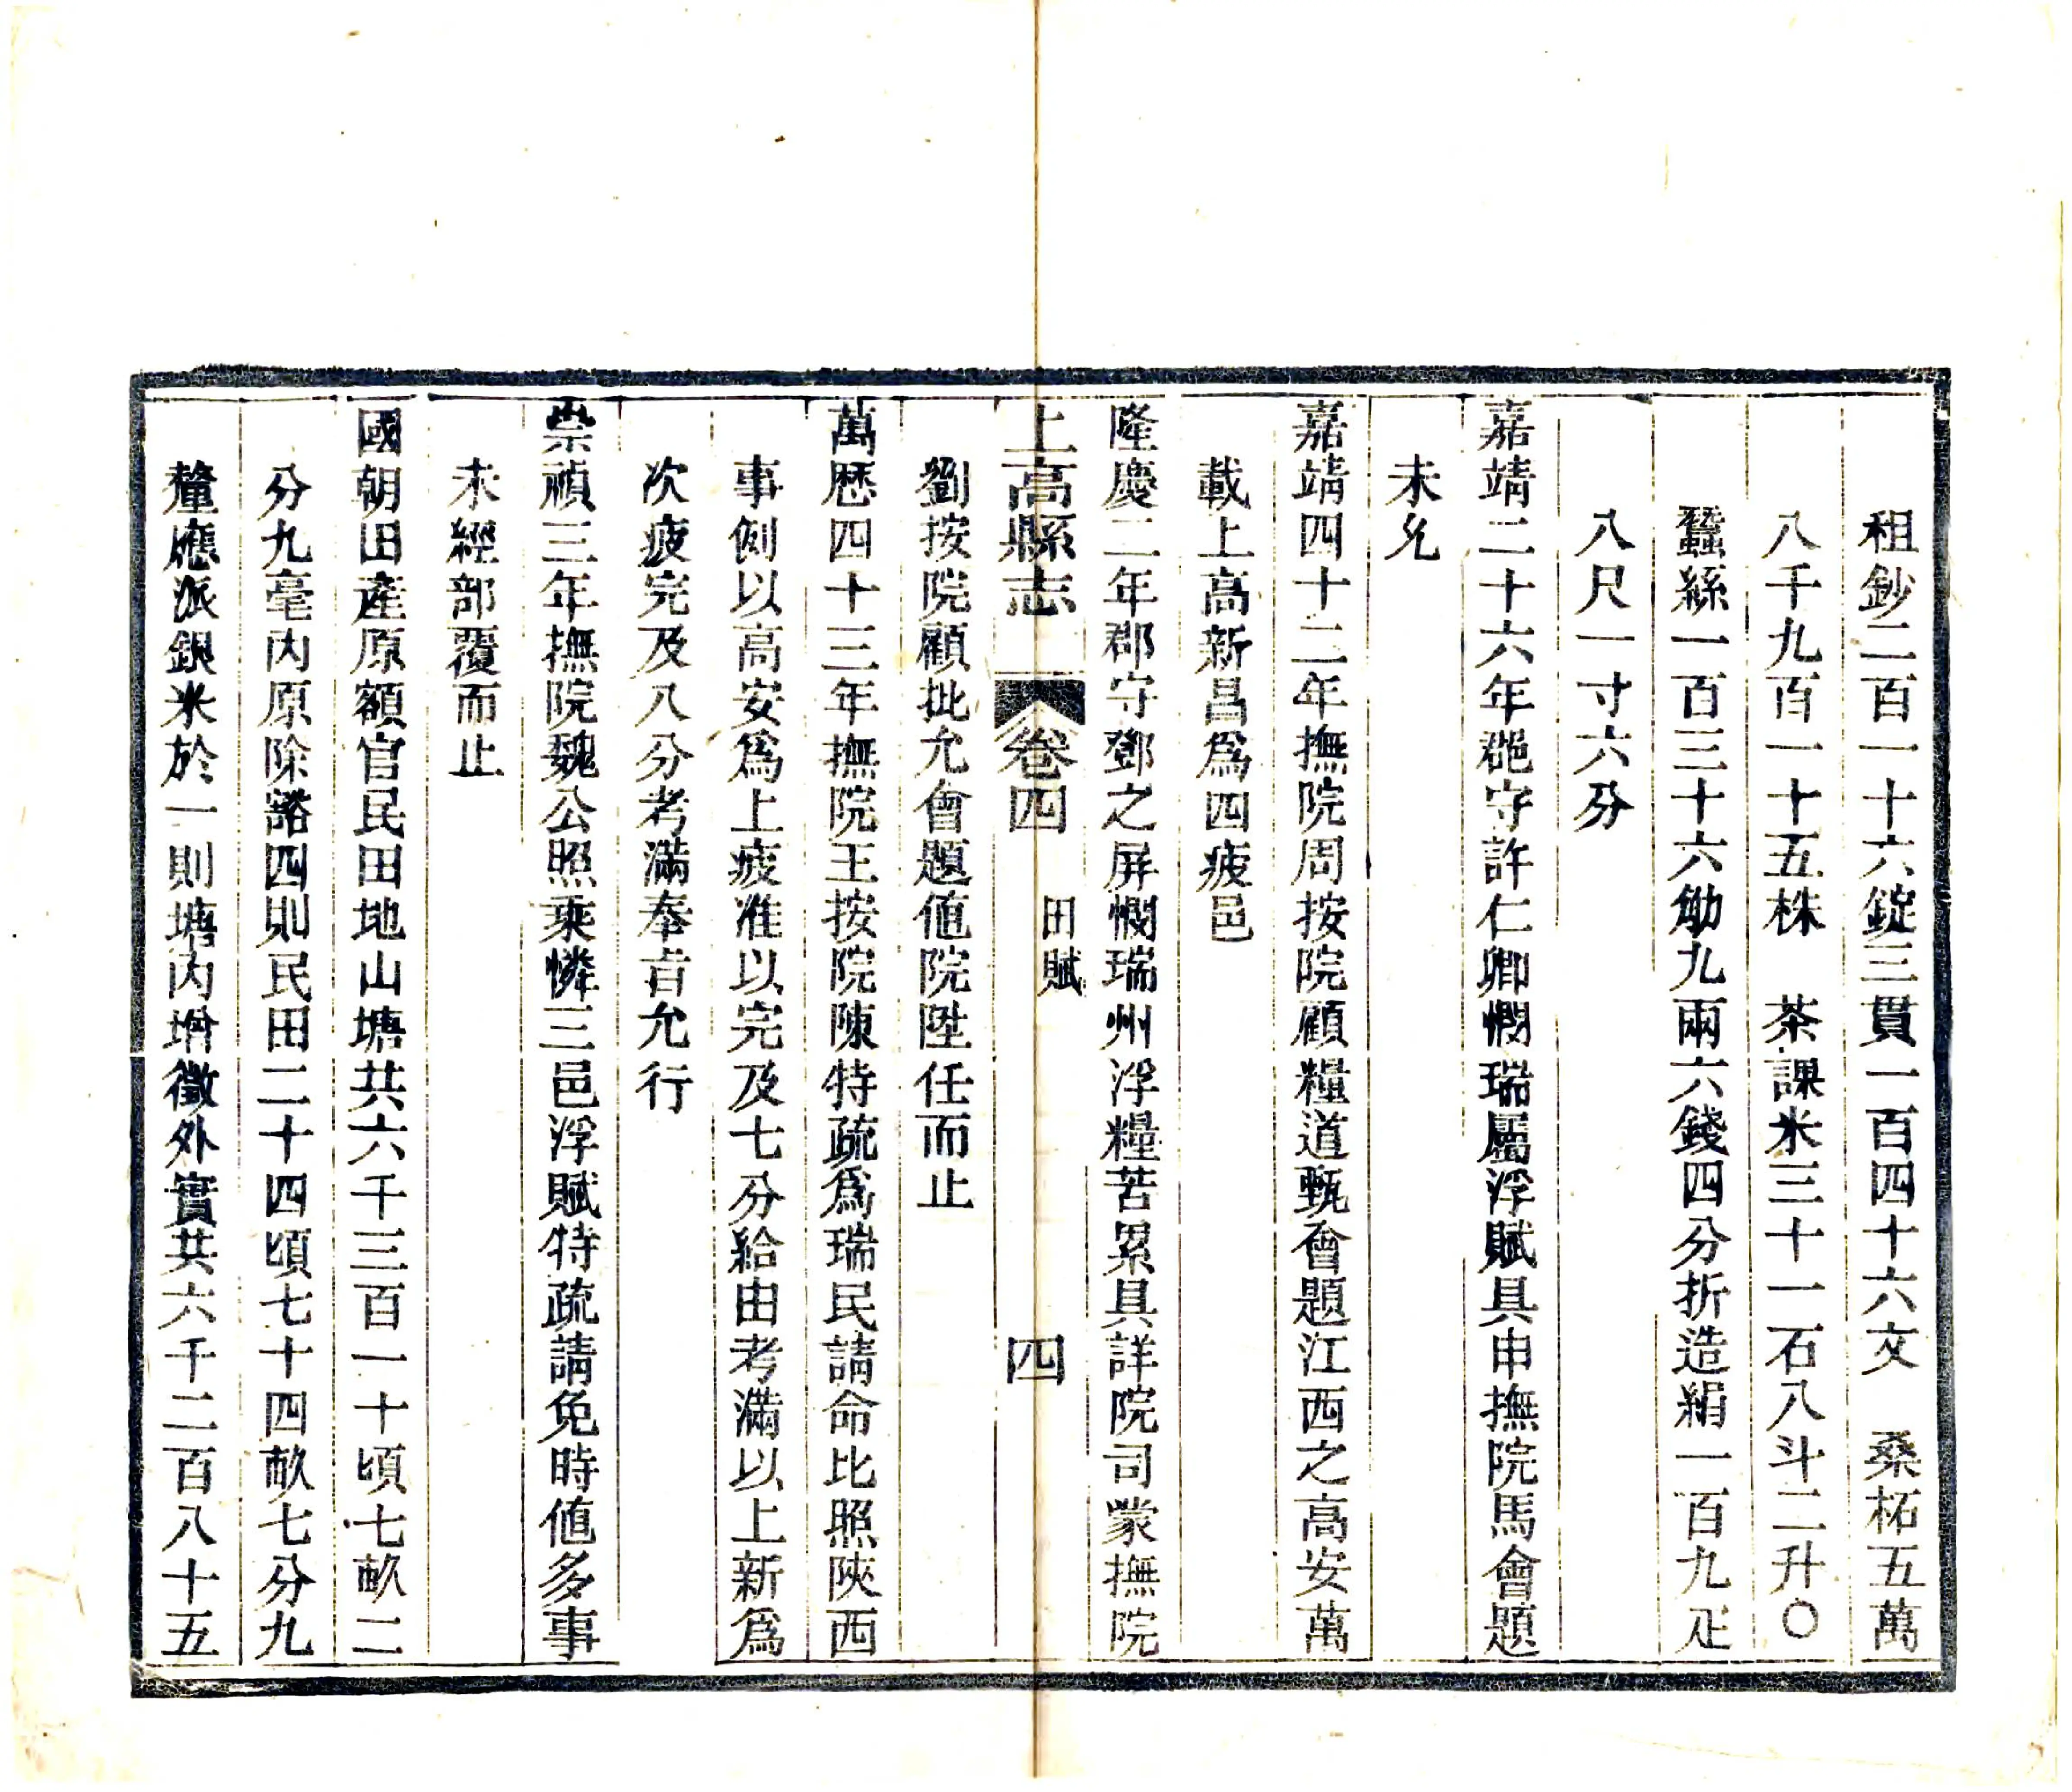 租鈔二百一十六錠三貫一百四十六文　桑柘五萬
八千九百一十五株　茶課米三十一石八斗二升〇
蠶絲一百三十六觔九兩六錢四分折造絹一百九疋
八尺一寸六分
嘉靖二十六年郡守許仁卿憫瑞屬浮賦具申撫院馬會題
未允
嘉靖四十二年撫院周按院顧糧道甄會題江西之高安萬
載上高新昌爲四疲邑
隆慶二年郡守鄧之屏憫瑞州浮糧苦累具詳院司蒙撫院
上高縣志　卷四　田賦　四
劉按院顧批允會題値院陞任而止
萬歷四十三年撫院王按院陳特疏爲瑞民請命比照陝西
事例以高安爲上疲准以完及七分給由考滿以上新爲
次疲完及八分考滿奉旨允行
崇禎三年撫院魏公照乘憐三邑浮賦特疏請免時値多事
未經部覆而止
國朝田產原額官民田地山塘共六千三百一十頃七畝二
分九毫內原除豁四則民田二十四頃七十四畝七分九
釐應派銀米於一則塘內增徵外實共六千二百八十五